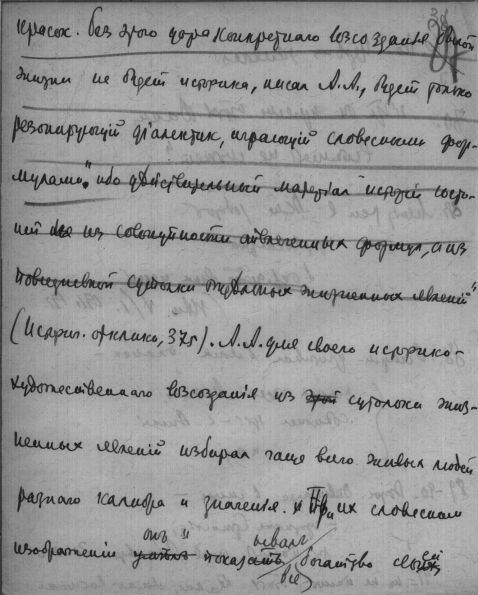 красок. без этого дара конкретнаго возсозданья былой
жизни не будет историка, писал А.А., будет только
резонирующій діалектик, играющій словесными фор-
мулами", ибо действительный матеріал исторіи состо-
ит не из совокупности отвлеченных формул, а из
повседневной сутолоки отдельных жизненных явленій"
(Истор. отклики, 375). А.А. для своего историко-
художественнаго возсозданія из этой сутолоки жиз-
ненных явленій избирал чаще всего живых людей
разнаго калибра и значенія. и При их словесном
он и
изображеніи показать богатство своих
все